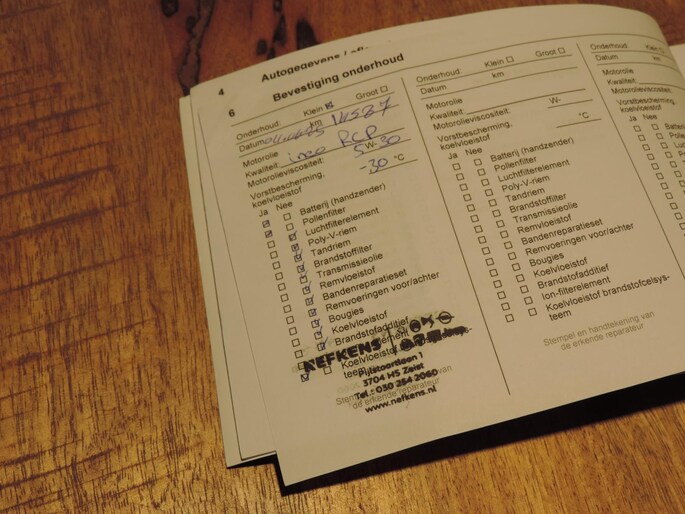 4 Autogegevens /
6 Bevestiging onderhoud
Onderhoud: Klein Groot
Datum km
Motorolie
Kwaliteit: ineo RCP
Motorolieviscositeit: 5W-30
Vorstbescherming, koelvloeistof -30 °C
Ja Nee
Batterij (handzender)
Pollenfilter
Luchtfilterelement
Poly-V-riem
Tandriem
Brandstoffilter
Transmissieolie
Remvloeistof
Bandenreparatieset
Remvoeringen voor/achter
Bougies
Koelvloeistof
Brandstofadditief
Koelvloeistof
teem
NEFKENS
Pijlstaartlaan 1
3704 HS Zeist
Tel.: 030 254 2060
de erkende reparateur
www.nefkens.nl
Onderhoud: Klein Groot
Datum km
Motorolie
Kwaliteit:
Motorolieviscositeit: W-
Vorstbescherming,
koelvloeistof °C
Ja Nee
Batterij (handzender)
Pollenfilter
Luchtfilterelement
Poly-V-riem
Tandriem
Brandstoffilter
Transmissieolie
Remvloeistof
Bandenreparatieset
Remvoeringen voor/achter
Bougies
Koelvloeistof
Brandstofadditief
Ion-filterelement
Koelvloeistof brandstofcelsys-
teem
Stempel en handtekening van
de erkende reparateur
Onderhoud: Klein
Datum km
Motorolie
Kwaliteit:
Motorolieviscositeit:
Vorstbescherming,
koelvloeistof
Ja Nee
Batterij
Pollenfilter